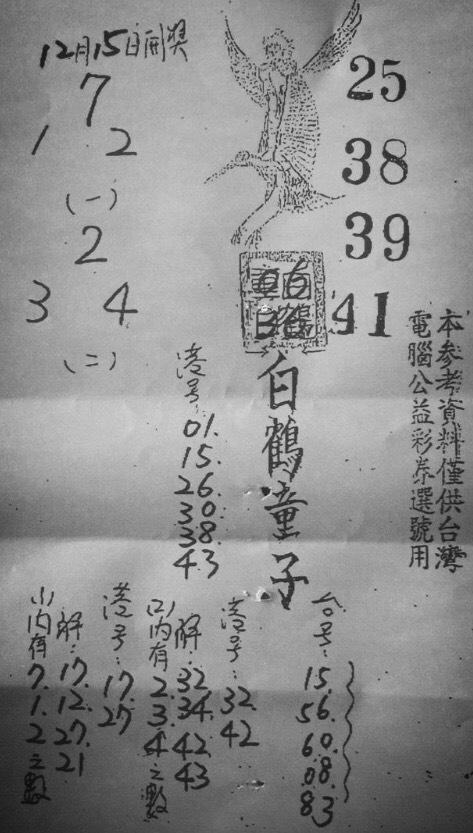 12月15日開獎
7
1 2
(一)
2
3 4
(二)
25
38
39
41
白鶴童子
本参考資料僅供台灣
電腦公益彩券選號用
港号:
01.
15.
26.
30.
38.
43
台号:
15.
56.
60.
08.
83
港号:
32.
42
解:
32
34.
42.
43
(二)内有
2.
3.
4之數
港号:
17.
27
解:
17.
12.
27.
21
(一)内有
7.
1.
2之數